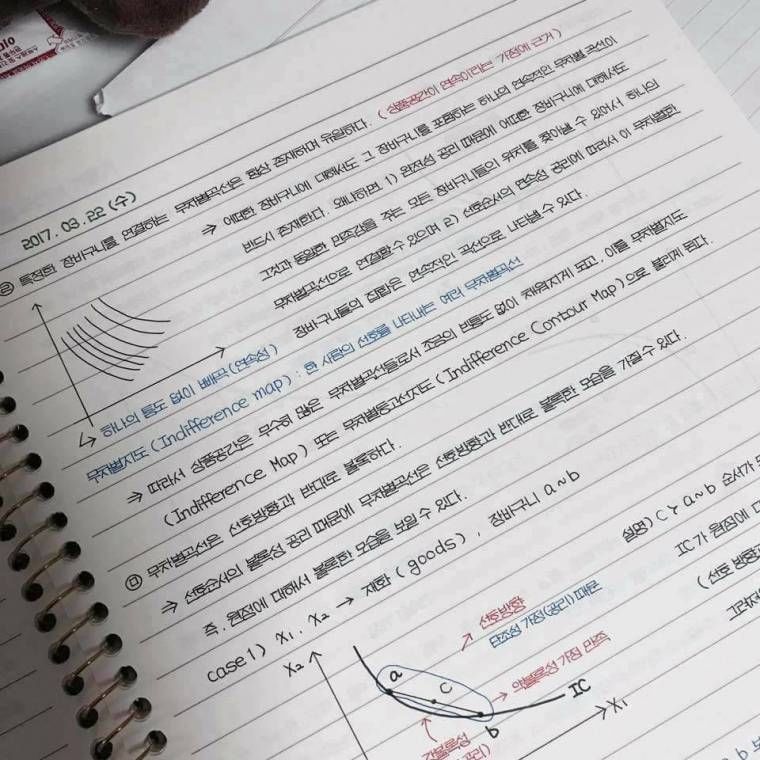 2017. 03. 22 (수)
특정한 장바구니를 연결하는 무차별곡선은 항상 존재하며 유일하다. (상품공간이 연속이라는 가정에 근거)
⇒ 어떠한 장바구니에 대해서도 그 장바구니를 포함하는 하나의 연속적인 무차별 곡선이
반드시 존재한다. 왜냐하면 1) 완전성 공리 때문에 어떠한 장바구니에 대해서도
그것과 동일한 만족감을 주는 모든 장바구니들의 위치를 찾아낼 수 있어서 하나의
무차별곡선으로 연결할 수 있으며 2) 선호순서의 연속성 공리에 따라서 이 무차별한
장바구니들의 집합은 연속적인 곡선으로 나타낼 수 있다.
↳ 하나의 틈도 없이 빼곡 (연속성)
무차별지도 (Indifference map) : 한 사람의 선호를 나타내는 여러 무차별곡선
→ 따라서 상품공간은 무수히 많은 무차별곡선들로서 조금의 빈틈도 없이 채워지게 되고, 이를 무차별지도
(Indifference Map) 또는 무차별등고선지도 (Indifference Contour Map)으로 불리게 된다.
ㅁ 무차별곡선은 선호방향과 반대로 볼록하다.
⇒ 선호순서의 볼록성 공리 때문에 무차별곡선은 선호방향과 반대로 볼록한 모습을 가질 수 있다.
즉, 원점에 대해서 볼록한 모습을 보일 수 있다.
case 1) X₁, X₂ → 재화 (goods), 장바구니 a~b
설명) C≻a~b 순서가
IC가 원점에
(선호 방향과
X₂
↗ 선호방향
단조성 가정(공리) 때문
a
C
b
→ 약볼록성 가정 만족
IC
X₁
강볼록성
공리)